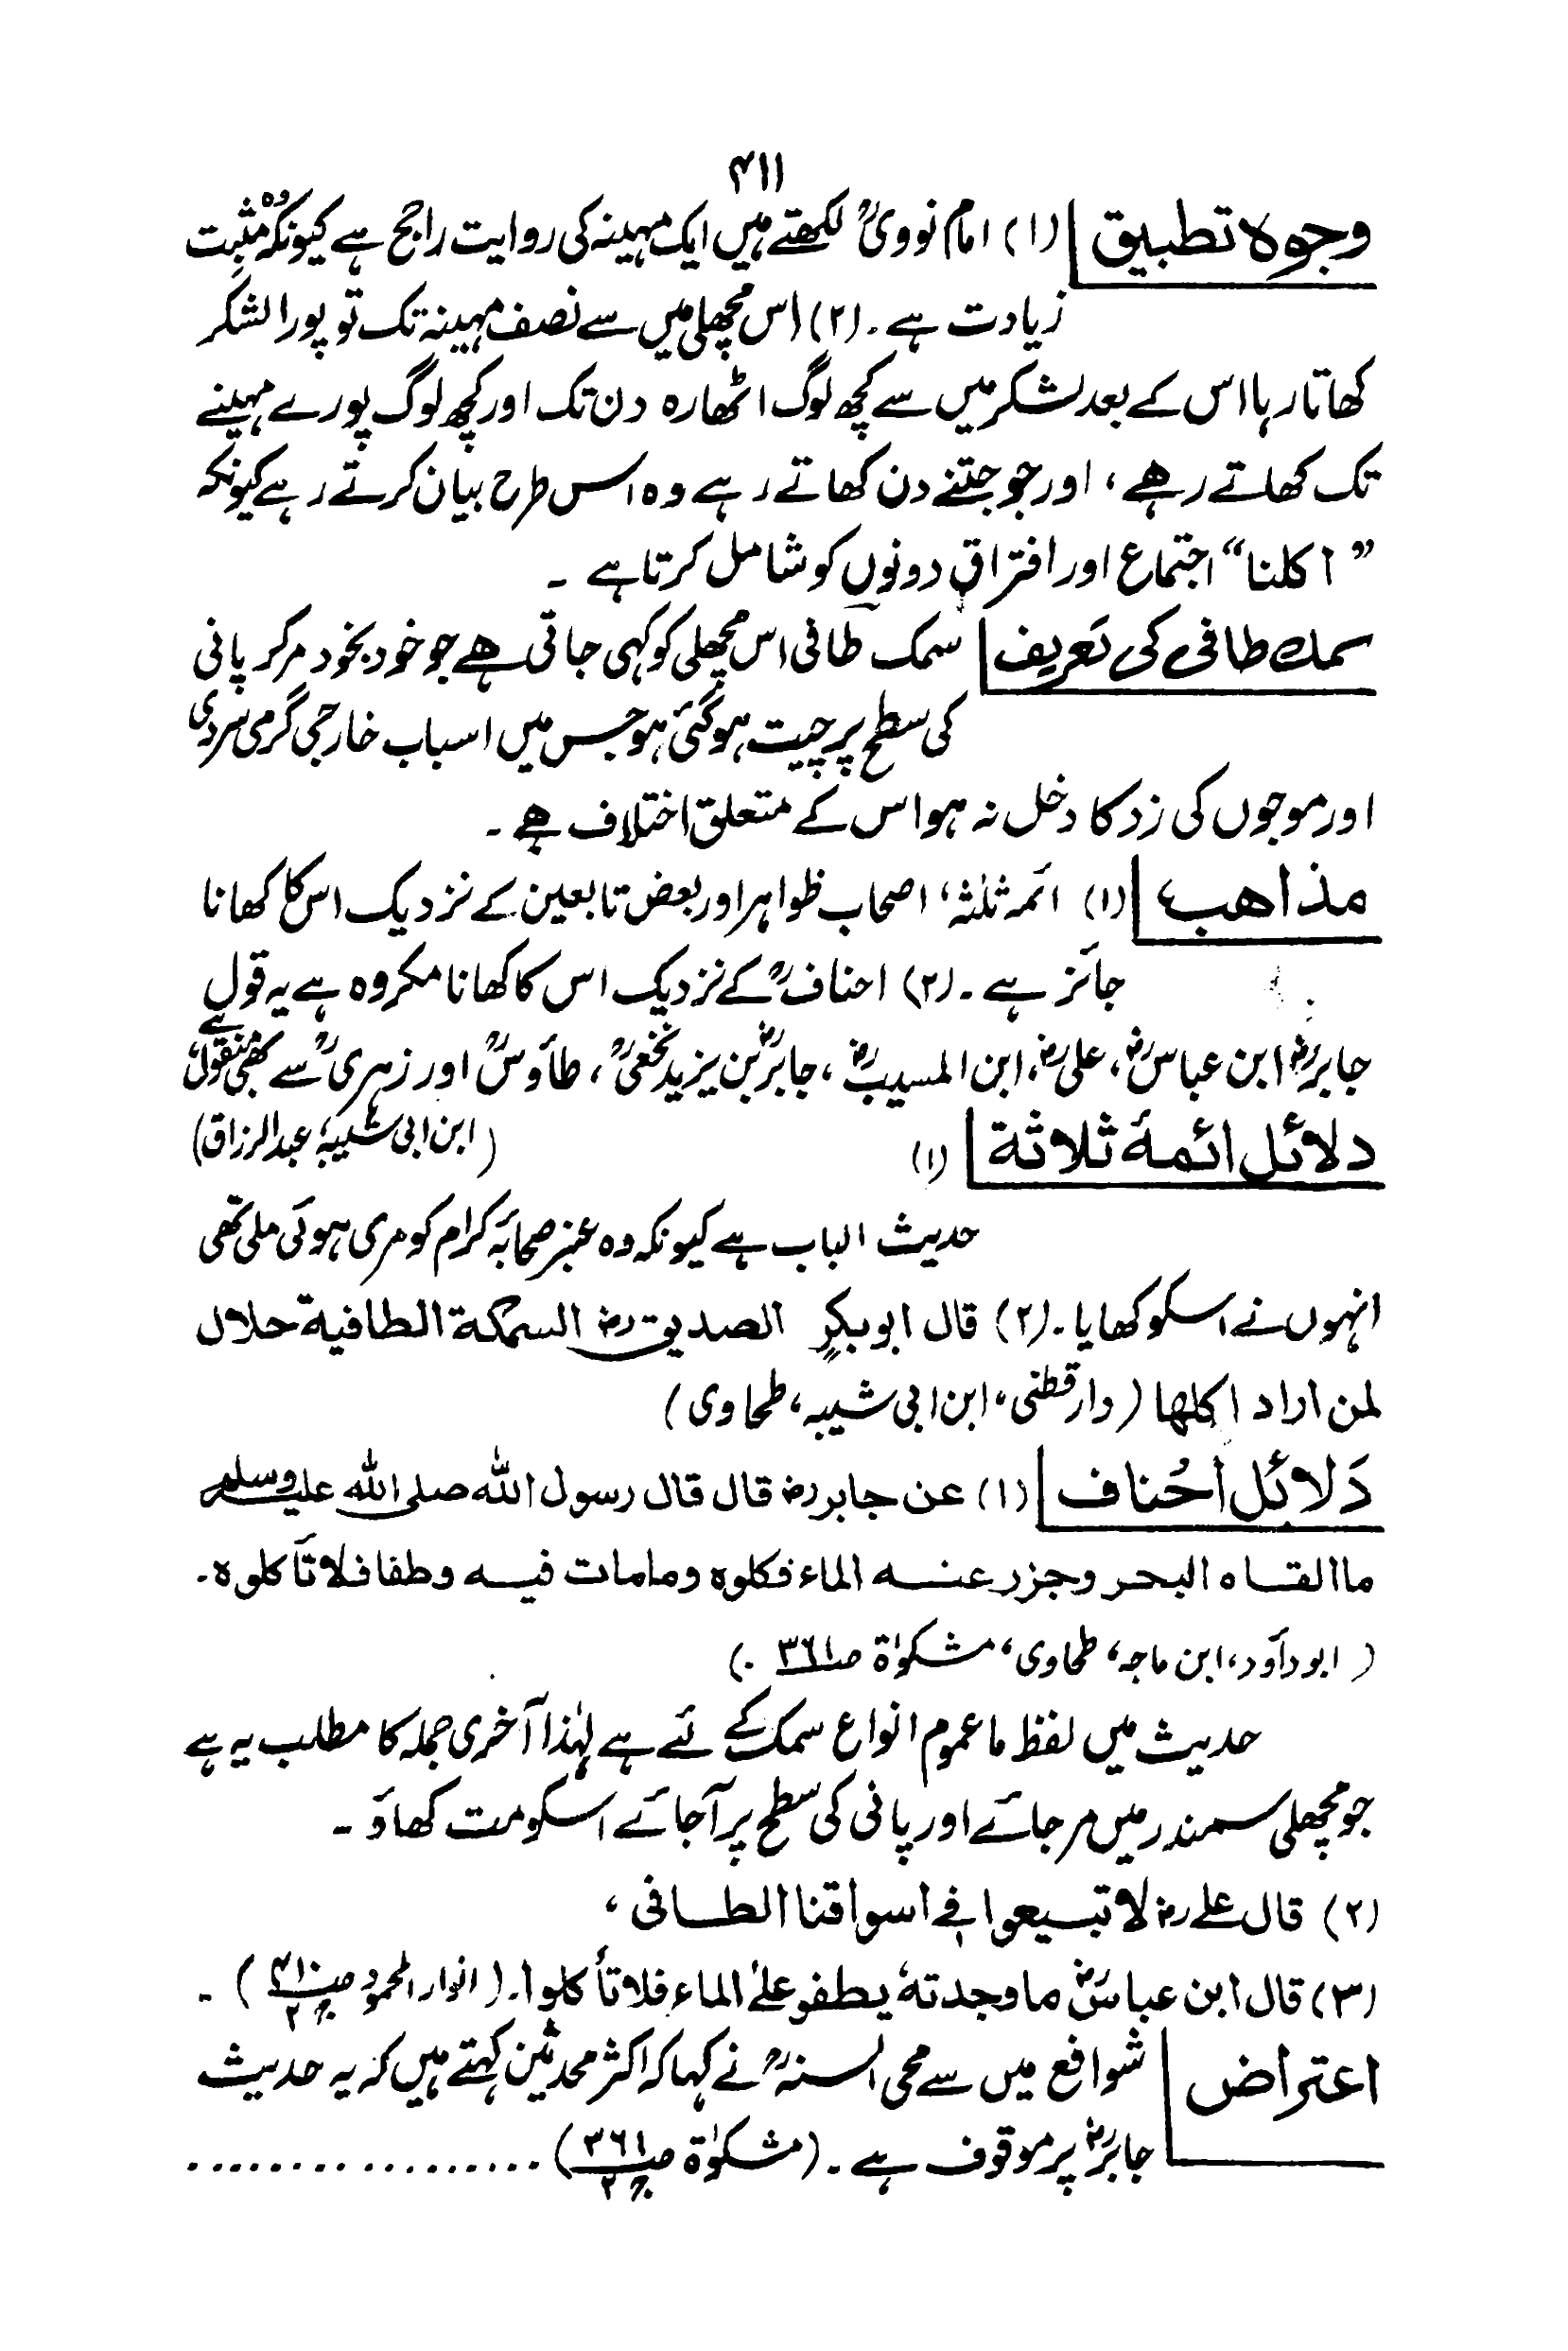 ۴۱۱
وجوہ تطبیق (۱) امام نوویؒ لکھتے ہیں ایک مہینہ کی روایت راجح ہے کیونکہ وہ مثبِت
زیادت ہے ۔ (۲) اس مچھلی میں سے نصف مہینہ تک تو پورا لشکر
کھاتا رہا اس کے بعد لشکر میں سے کچھ لوگ اٹھارہ دن تک اور کچھ لوگ پورے مہینے
تک کھاتے رہے ، اور جو جتنے دن کھاتے رہے وہ اس طرح بیان کرتے رہے کیونکہ
” اکلنا “ اجتماع اور افتراق دونوں کو شامل کرتا ہے ۔
سمك طافی کی تعریف سمک طافی اس مچھلی کو کہی جاتی ہے جو خود بخود مرکر پانی
کی سطح پر چیت ہوگئی ہو جس میں اسباب خارجی گرمی سردی
اور موجوں کی زد کا دخل نہ ہو اس کے متعلق اختلاف ہے ۔
مذاھب (۱) ائمہ ثلثہ ، اصحاب ظواہر اور بعض تابعین کے نزدیک اس کا کھانا
جائز ہے ۔ (۲) احنافؒ کے نزدیک اس کا کھانا مکروہ ہے یہ قول
جابرؓ ابن عباسؓ ، علیؓ ، ابن المسیبؓ ، جابرؓ بن یزید نخعیؒ ، طاؤسؒ اور زہریؒ سے بھی منقول ہے
دلائل ائمۂ ثلاثة (۱) ( ابن ابی شیبہ ، عبدالرزاق )
حدیث الباب ہے کیونکہ وہ عنبر صحابۂ کرام کو مری ہوئی ملی تھی
انہوں نے اسکو کھایا ۔ (۲) قال ابو بکرٍ الصدیق رض السمکة الطافیة حلال
لمن اراد اکلھا ( دار قطنی ، ابن ابی شیبہ ، طحاوی )
دَلائل اَحُناف (۱) عن جابر رض قال قال رسول اللّٰه صلی اللّٰه علیہ وسلم
ما القاه البحر وجزر عنه الماء فکلوہ وما مات فیه وطفا فلا تأکلوہ ۔
( ابو داؤد ، ابن ماجہ ، طحاوی ، مشکوٰة صـ ۳۶۱ ۰ )
حدیث میں لفظ ما عموم انواع سمک کے لئے ہے لہٰذا آخری جملہ کا مطلب یہ ہے
جو مچھلی سمندر میں مرجائے اور پانی کی سطح پر آجائے اسکو مت کھاؤ ۔
(۲) قال علی رض لا تبیعوا فی اسواقنا الطافی ،
(۳) قال ابن عباسؓ ما وجدتهٗ یطفو علیٰ الماء فلا تأکلوا ۔ ( انوار المحمود صـ ۴۱۰ ج ۲ ) ۔
اعتراض شوافع میں سے محی السنہؒ نے کہا کہ اکثر محدثین کہتے ہیں کہ یہ حدیث
جابرؓ پر موقوف ہے ۔ ( مشکوٰة صـ ۳۶۱ ج ۲ ) ................